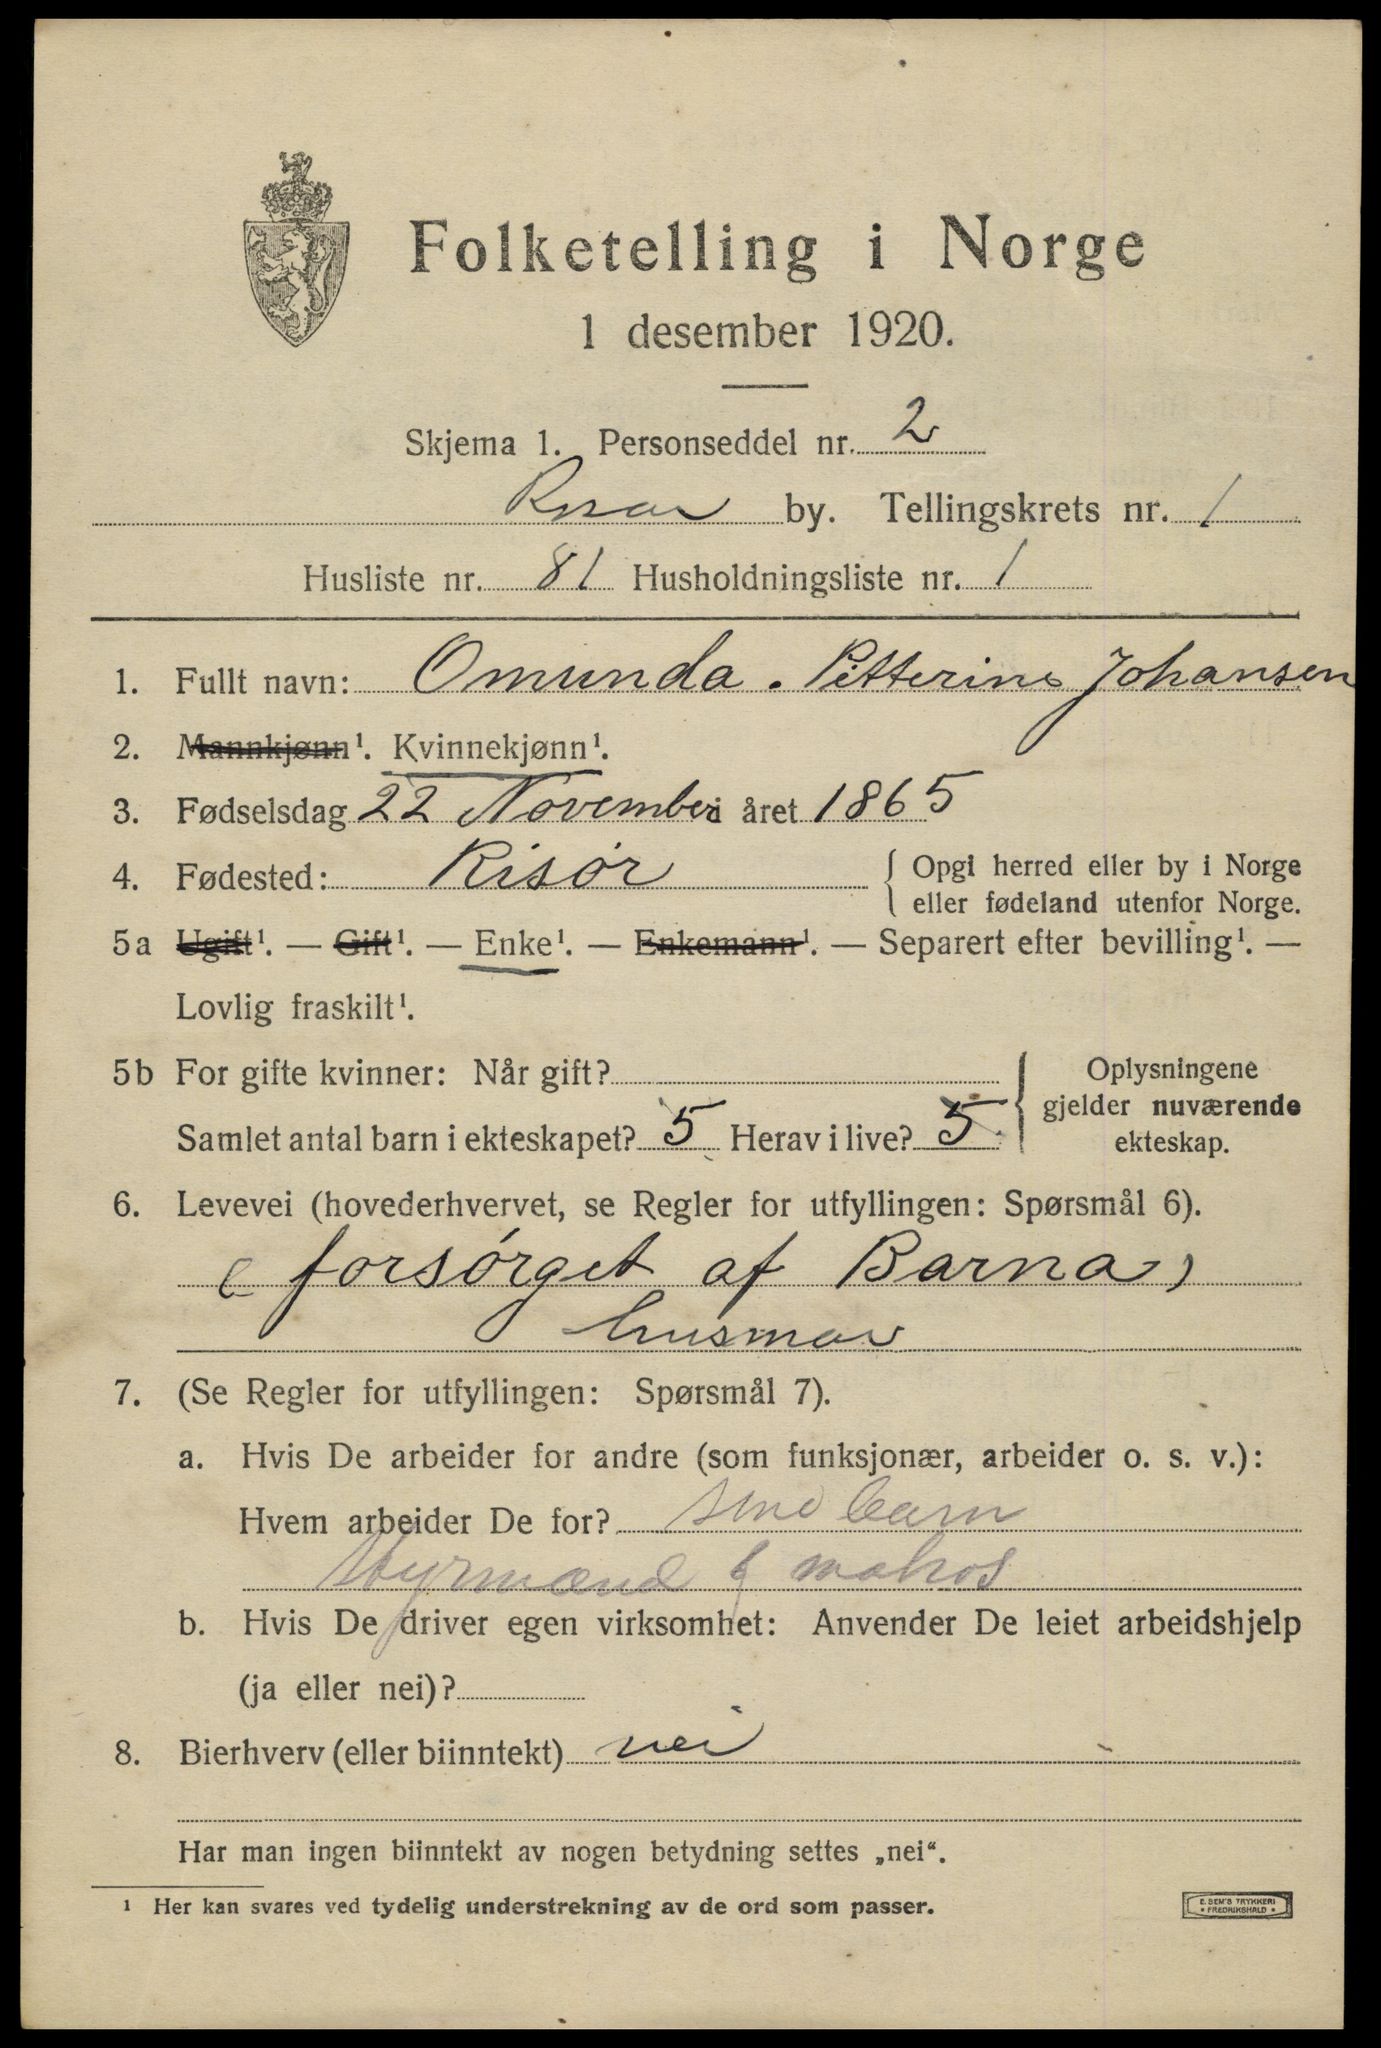 Folketelling i Norge
1 desember 1920.
Skjema 1. Personseddel nr. 2
Risør by. Tellingskrets nr. 1
Husliste nr. 81 Husholdningsliste nr. 1
1. Fullt navn: Omunda. Petterine Johansen
2. Mannkjønn¹. Kvinnekjønn¹.
3. Fødselsdag 22 November i året 1865
4. Fødested: Risør { Opgi herred eller by i Norge
eller fødeland utenfor Norge.
5a Ugift¹. — Gift¹. — Enke¹. — Enkemann¹. — Separert efter bevilling¹. —
Lovlig fraskilt¹.
5b For gifte kvinner: Når gift?
Samlet antal barn i ekteskapet? 5 Herav i live? 5
{ Oplysningene
gjelder nuværende
ekteskap.
6. Levevei (hovederhvervet, se Regler for utfyllingen: Spørsmål 6).
( forsørget af Barna )
husmor
7. (Se Regler for utfyllingen: Spørsmål 7).
a. Hvis De arbeider for andre (som funksjonær, arbeider o. s. v.):
Hvem arbeider De for? sine barn
Styrmænd & matros
b. Hvis De driver egen virksomhet: Anvender De leiet arbeidshjelp
(ja eller nei)?
8. Bierhverv (eller biinntekt) nei
Har man ingen biinntekt av nogen betydning settes „nei“.
¹ Her kan svares ved tydelig understrekning av de ord som passer.
E. SEM'S TRYKKERI
• FREDRIKSHALD •